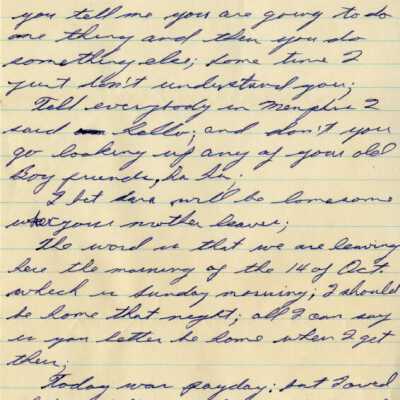 you tell me you are going to do
one thing and then you do
something else; some time I
just don't understand you;
Tell everybody in Memphis I
said Hello; and don't you
go looking up any of your old
boy friends, ha ha;
I bet will be lonesome
when your mother leaves;
The word is that we are leaving
here the morning of the 14 of Oct.
which is Sunday morning; I should
be home that night; all I can say
is you better be home when I get
there;
Today was payday; but I owed